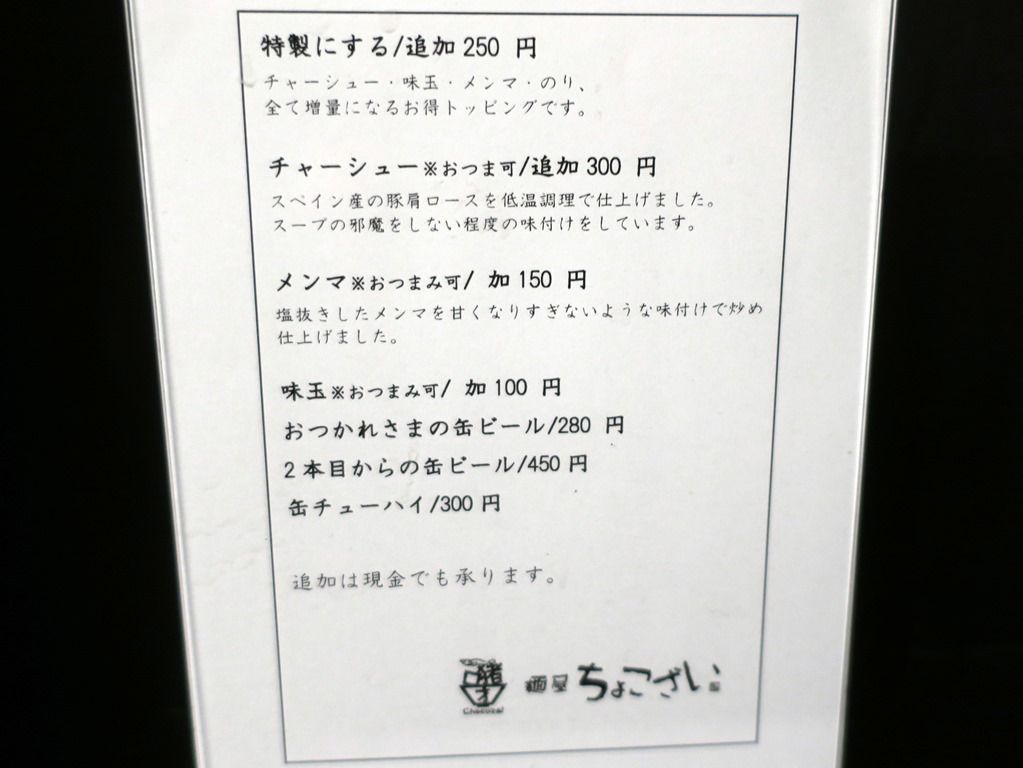 特製にする/追加 250 円
チャーシュー・味玉・メンマ・のり、
全て増量になるお得トッピングです。
チャーシュー※おつま可/追加 300 円
スペイン産の豚肩ロースを低温調理で仕上げました。
スープの邪魔をしない程度の味付けをしています。
メンマ※おつまみ可/ 加 150 円
塩抜きしたメンマを甘くなりすぎないような味付けで炒め
仕上げました。
味玉※おつまみ可/ 加 100 円
おつかれさまの缶ビール/280 円
2 本目からの缶ビール/450 円
缶チューハイ/300 円
追加は現金でも承ります。
猪才
Chocozai
麺屋 ちょこざい